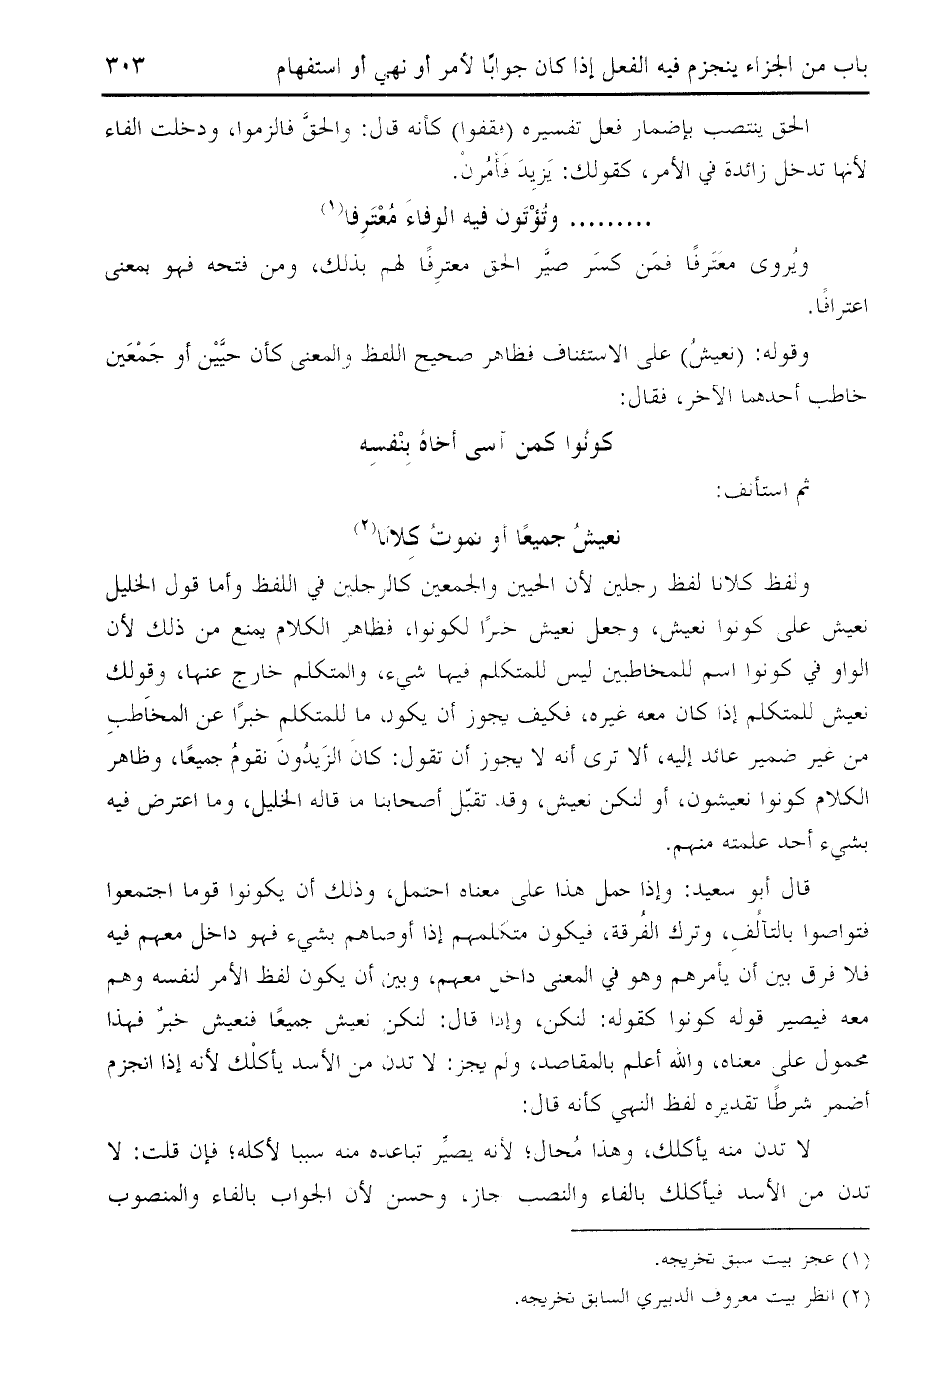 باب من الجزاء ينجزم فيه الفعل إذا كان جوابًا لأمر أو نهي أو استفهام ٣٠٣
الحق ينتصب بإضمار فعل تفسيره (فقفوا) كأنه قال: والحقَّ فالزموا، ودخلت الفاء
لأنها تدخل زائدة في الأمر، كقولك: يَزيدَ فَأْمُرنْ.
......... وتُؤْتون فيه الوفاءَ مُعْتَرِفا(١)
ويُروى معتَرفًا فمَن كسَر صيَّر الحق معترِفًا لهم بذلك، ومن فتحه فهو بمعنى
اعترافًا.
وقوله: (نعيشُ) على الاستئناف فظاهر صحيح اللفظ والمعنى كأن حيَّيْن أو جَمْعَين
خاطب أحدهما الآخر، فقال:
كونُوا كمن آسى أخاهُ بِنْفسِه
ثم استأنف:
نعيشُ جميعًا أو نموتُ كِلانا(٢)
ولفظ كلانا لفظ رجلين لأن الحيين والجمعين كالرجلين في اللفظ وأما قول الخليل
نعيش على كونوا نعيش، وجعل نعيش خبرًا لكونوا، فظاهر الكلام يمنع من ذلك لأن
الواو في كونوا اسم للمخاطبين ليس للمتكلم فيها شيء، والمتكلم خارج عنها، وقولك
نعيش للمتكلم إذا كان معه غيره، فكيف يجوز أن يكون ما للمتكلم خبرًا عن المخاطَبِ
من غير ضمير عائد إليه، ألا ترى أنه لا يجوز أن تقول: كانَ الزَيدُونَ نقومُ جميعًا، وظاهر
الكلام كونوا نعيشون، أو لنكن نعيش، وقد تقبّل أصحابنا ما قاله الخليل، وما اعترض فيه
بشيء أحد علمته منهم.
قال أبو سعيد: وإذا حمل هذا على معناه احتمل، وذلك أن يكونوا قوما اجتمعوا
فتواصوا بالتآلُفِ، وترك الفُرقة، فيكون متكَلمهم إذا أوصاهم بشيء فهو داخل معهم فيه
فلا فرق بين أن يأمرهم وهو في المعنى داخل معهم، وبين أن يكون لفظ الأمر لنفسه وهم
معه فيصير قوله كونوا كقوله: لنكن، وإذا قال: لنكن نعيش جميعًا فنعيش خبرٌ فهذا
محمول على معناه، والله أعلم بالمقاصد، ولم يجز: لا تدن من الأسد يأكلْك لأنه إذا انجزم
أضمر شرطًا تقديره لفظ النهي كأنه قال:
لا تدن منه يأكلك، وهذا مُحال؛ لأنه يصيِّر تباعده منه سببا لأكله؛ فإن قلت: لا
تدن من الأسد فيأكلك بالفاء والنصب جاز، وحسن لأن الجواب بالفاء والمنصوب
(١) عجز بيت سبق تخريجه.
(٢) انظر بيت معروف الدبيري السابق تخريجه.